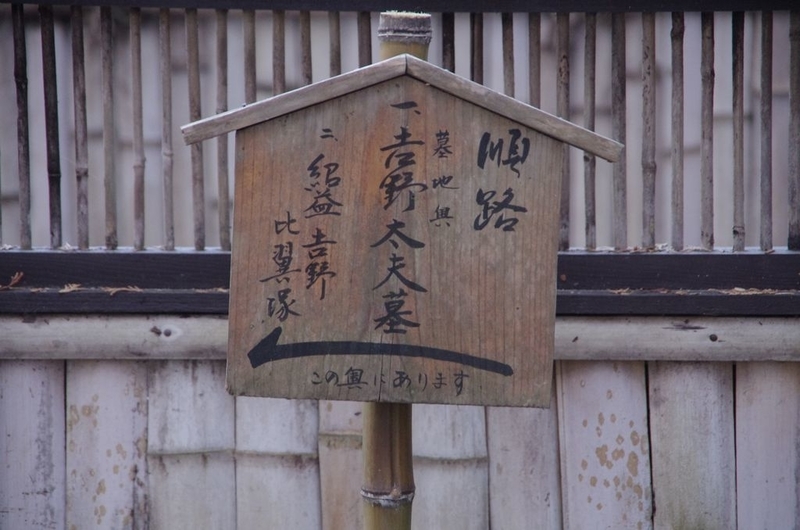 順路
墓地奥
一、吉野太夫墓
二、紹益吉野
比翼塚
この奥にあります